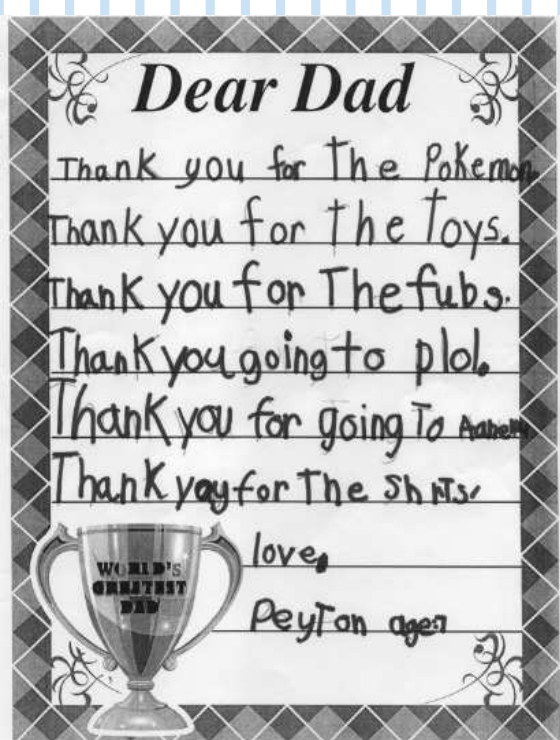 Dear Dad
Thank you for The Pokemon.
Thank you for the Toys.
Thank you for The fubs.
Thank you going to plol.
Thank you for going To
Thank you for The Shrts.
love,
WORLD'S
GREATEST
DAD
Peyton age7